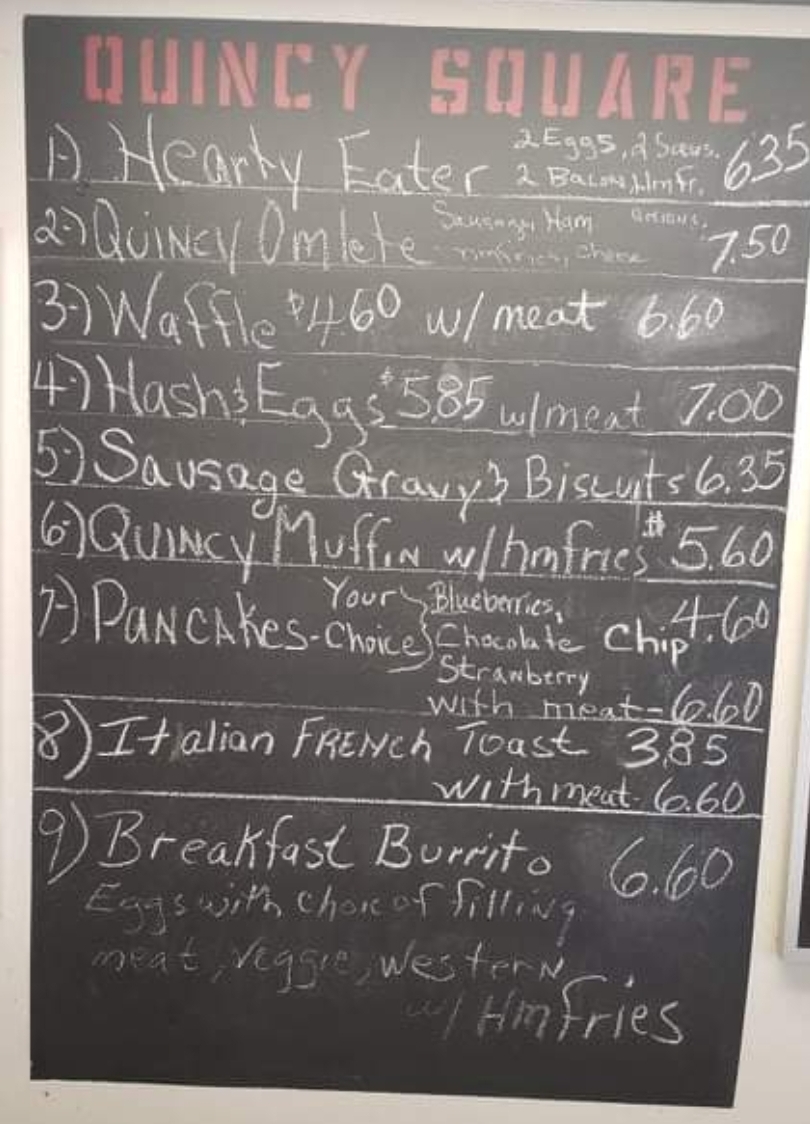 QUINCY SQUARE
1-) Hearty Eater 2 Eggs, 2 Saus. 2 Bacon, Hmfr. 635
2-) QUINCY Omlete Sausage, Ham onions, hmfries, cheese 7.50
3-) Waffle $4.60 w/ meat 6.60
4-) Hash & Eggs $5.85 w/meat 7.00
5-) Sausage Gravy & Biscuits 6.35
6-) QUINCY Muffin w/ hmfries $5.60
7-) PANCAKes - Your Choice } Blueberries, 4.60
Chocolate Chip
Strawberry
with meat - 6.60
8) Italian FRENCh Toast 3.85
with meat - 6.60
9) Breakfast Burrito 6.60
Eggs with choice of filling
meat, veggie, western
w/ Hmfries